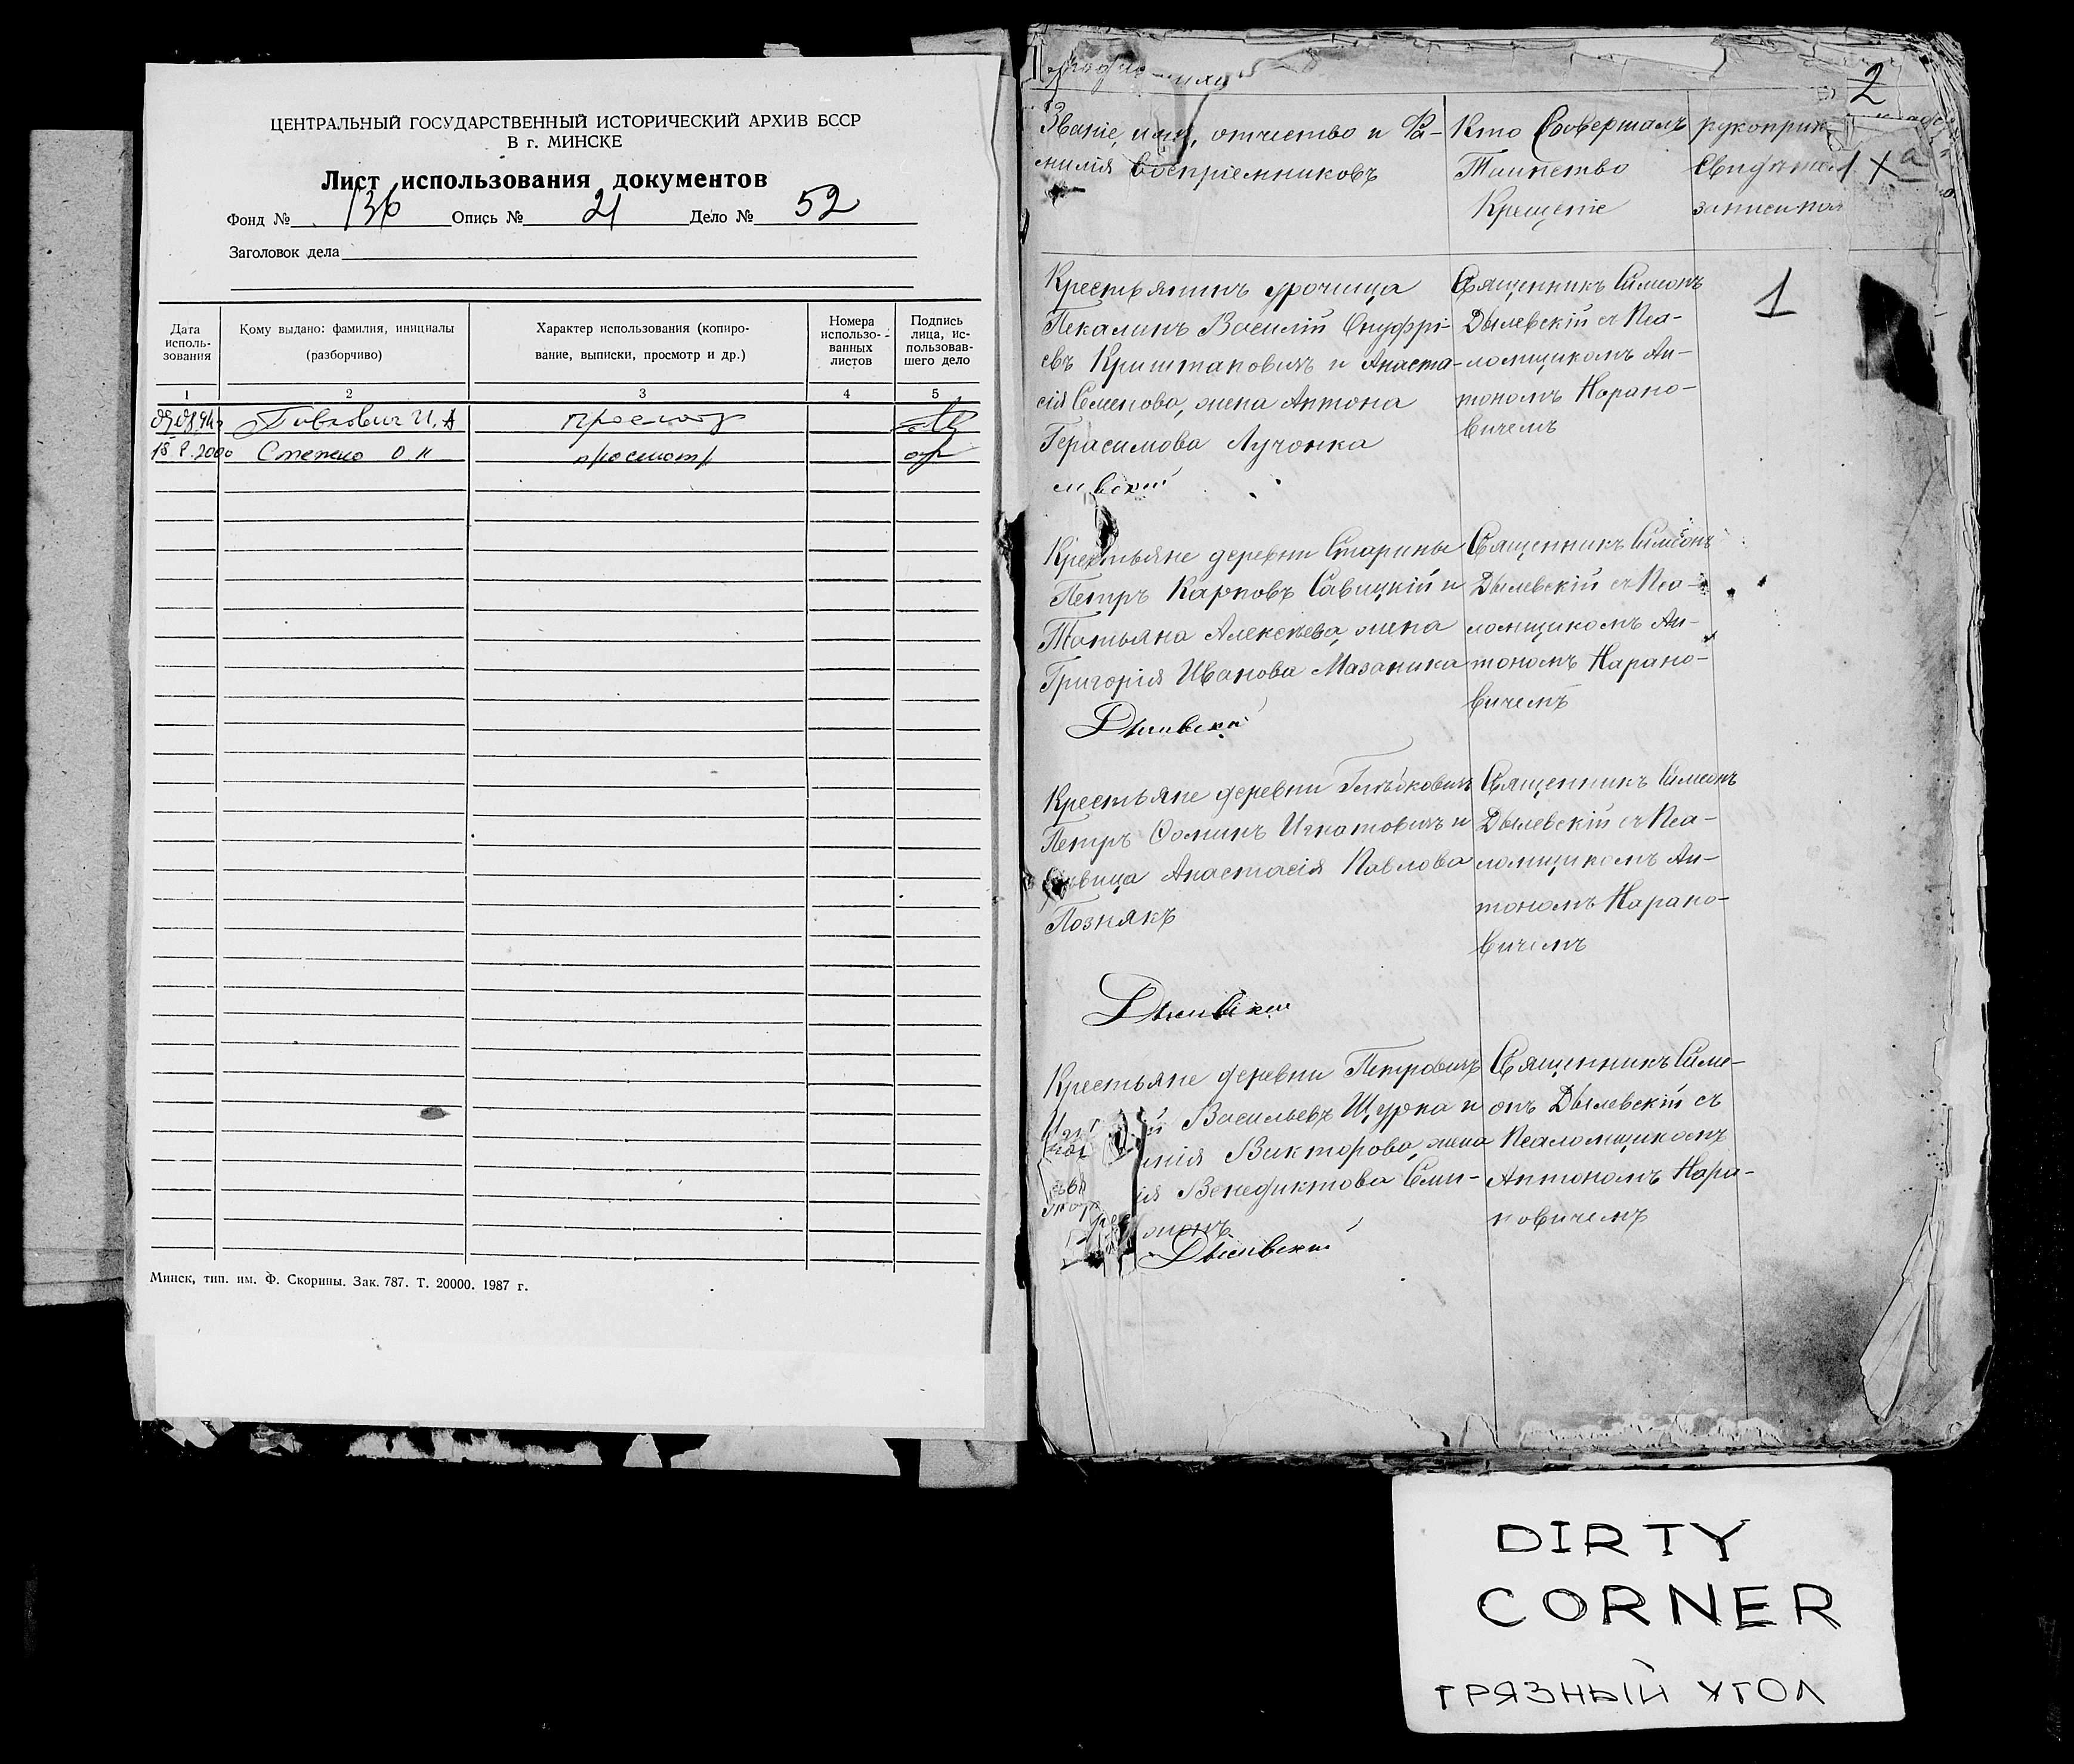 ЦЕНТРАЛЬНЫЙ ГОСУДАРСТВЕННЫЙ ИСТОРИЧЕСКИЙ АРХИВ БССР
В г. МИНСКЕ
Лист использования документов
Фонд № 136 Опись № 21 Дело № 52
Заголовок дела
Дата исполь-зования
Кому выдано: фамилия, инициалы (разборчиво)
Характер использования (копиро-вание, выписки, просмотр и др.)
Номера использо-ванных листов
Подпись лица, ис-пользовав-шего дело
1 2 3 4 5
просмотр
2000 О. Н. просмотр
Минск, тип. им. Ф. Скорины. Зак. 787. Т. 20000. 1987 г.
2
Званіе, имя, отчество и Фа-
милія воспріемниковъ
Кто Совершалъ
Таинство
Крещеніе
рукоприк
Свидѣтел
записи пол
1
Крестьянинъ урочища
Пекалинъ Василій Онуфрі-
евъ Криштаповичъ и Анаста-
сія Семенова, жена Антона
Герасимова Лучонка
Священникъ Симеонъ
Дылевскій съ Пса-
ломщикомъ Ан-
тономъ Нарано-
вичемъ
Крестьяне деревни Старины
Петръ Карповъ Савицкій и
Татьяна Алексѣева, жена
Григорія Иванова Мазаника
Дылевскій
Священникъ Симеонъ
Дылевскій съ Пса-
ломщикомъ Ан-
тономъ Нарано-
вичемъ
Крестьяне деревни Глѣбковичъ
Петръ Ѳоминъ Игнатовичъ и
дѣвица Анастасія Павлова
Познякъ
Дылевскій
Священникъ Симеонъ
Дылевскій съ Пса-
ломщикомъ Ан-
тономъ Нарано-
вичемъ
Крестьяне деревни Петровичъ
Васильевъ Щурка и
Викторова, жена
Венедиктова Сли-
монъ
Дылевскій
Священникъ Симе-
онъ Дылевскій съ
Псаломщикомъ
Антономъ Нара-
новичемъ
DIRTY
CORNER
ГРЯЗНЫЙ УГОЛ